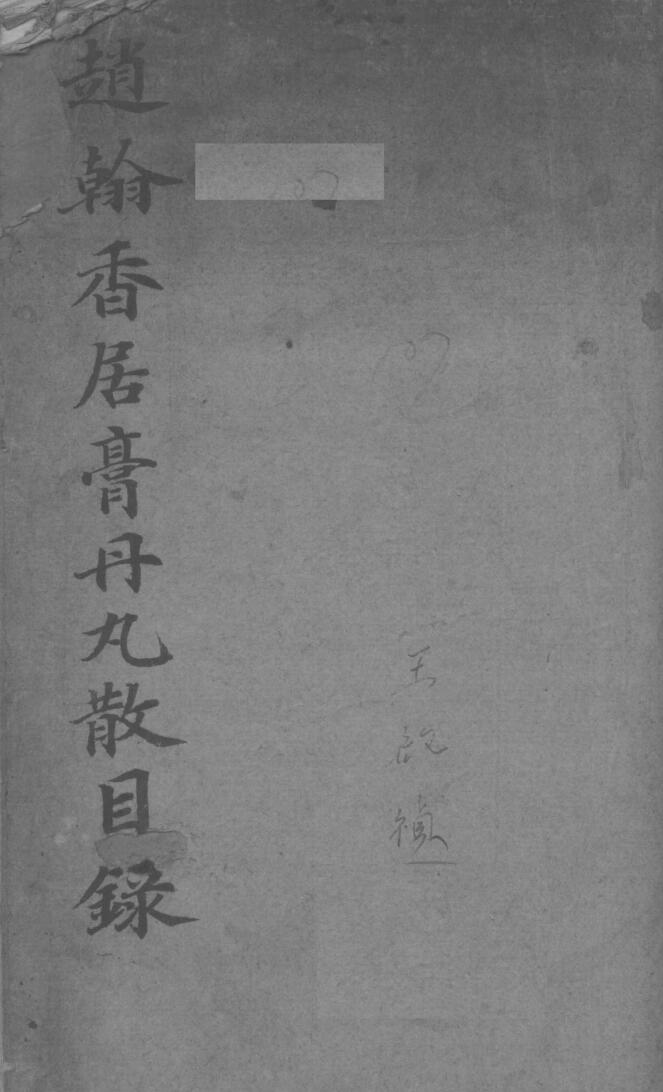 趙翰香居膏丹丸散目錄
王
禎